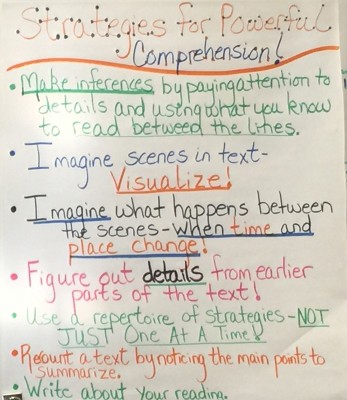 Strategies for Powerful
Comprehension!
• Make inferences by paying attention to
details and using what you know
to read between the lines.
• Imagine scenes in text-
Visualize!
• Imagine what happens between
the scenes-when time and
place change!
• Figure out details from earlier
parts of the text!
• Use a repertoire of strategies-NOT
JUST One At A Time!!
• Recount a text by noticing the main points to
summarize.
• Write about your reading.